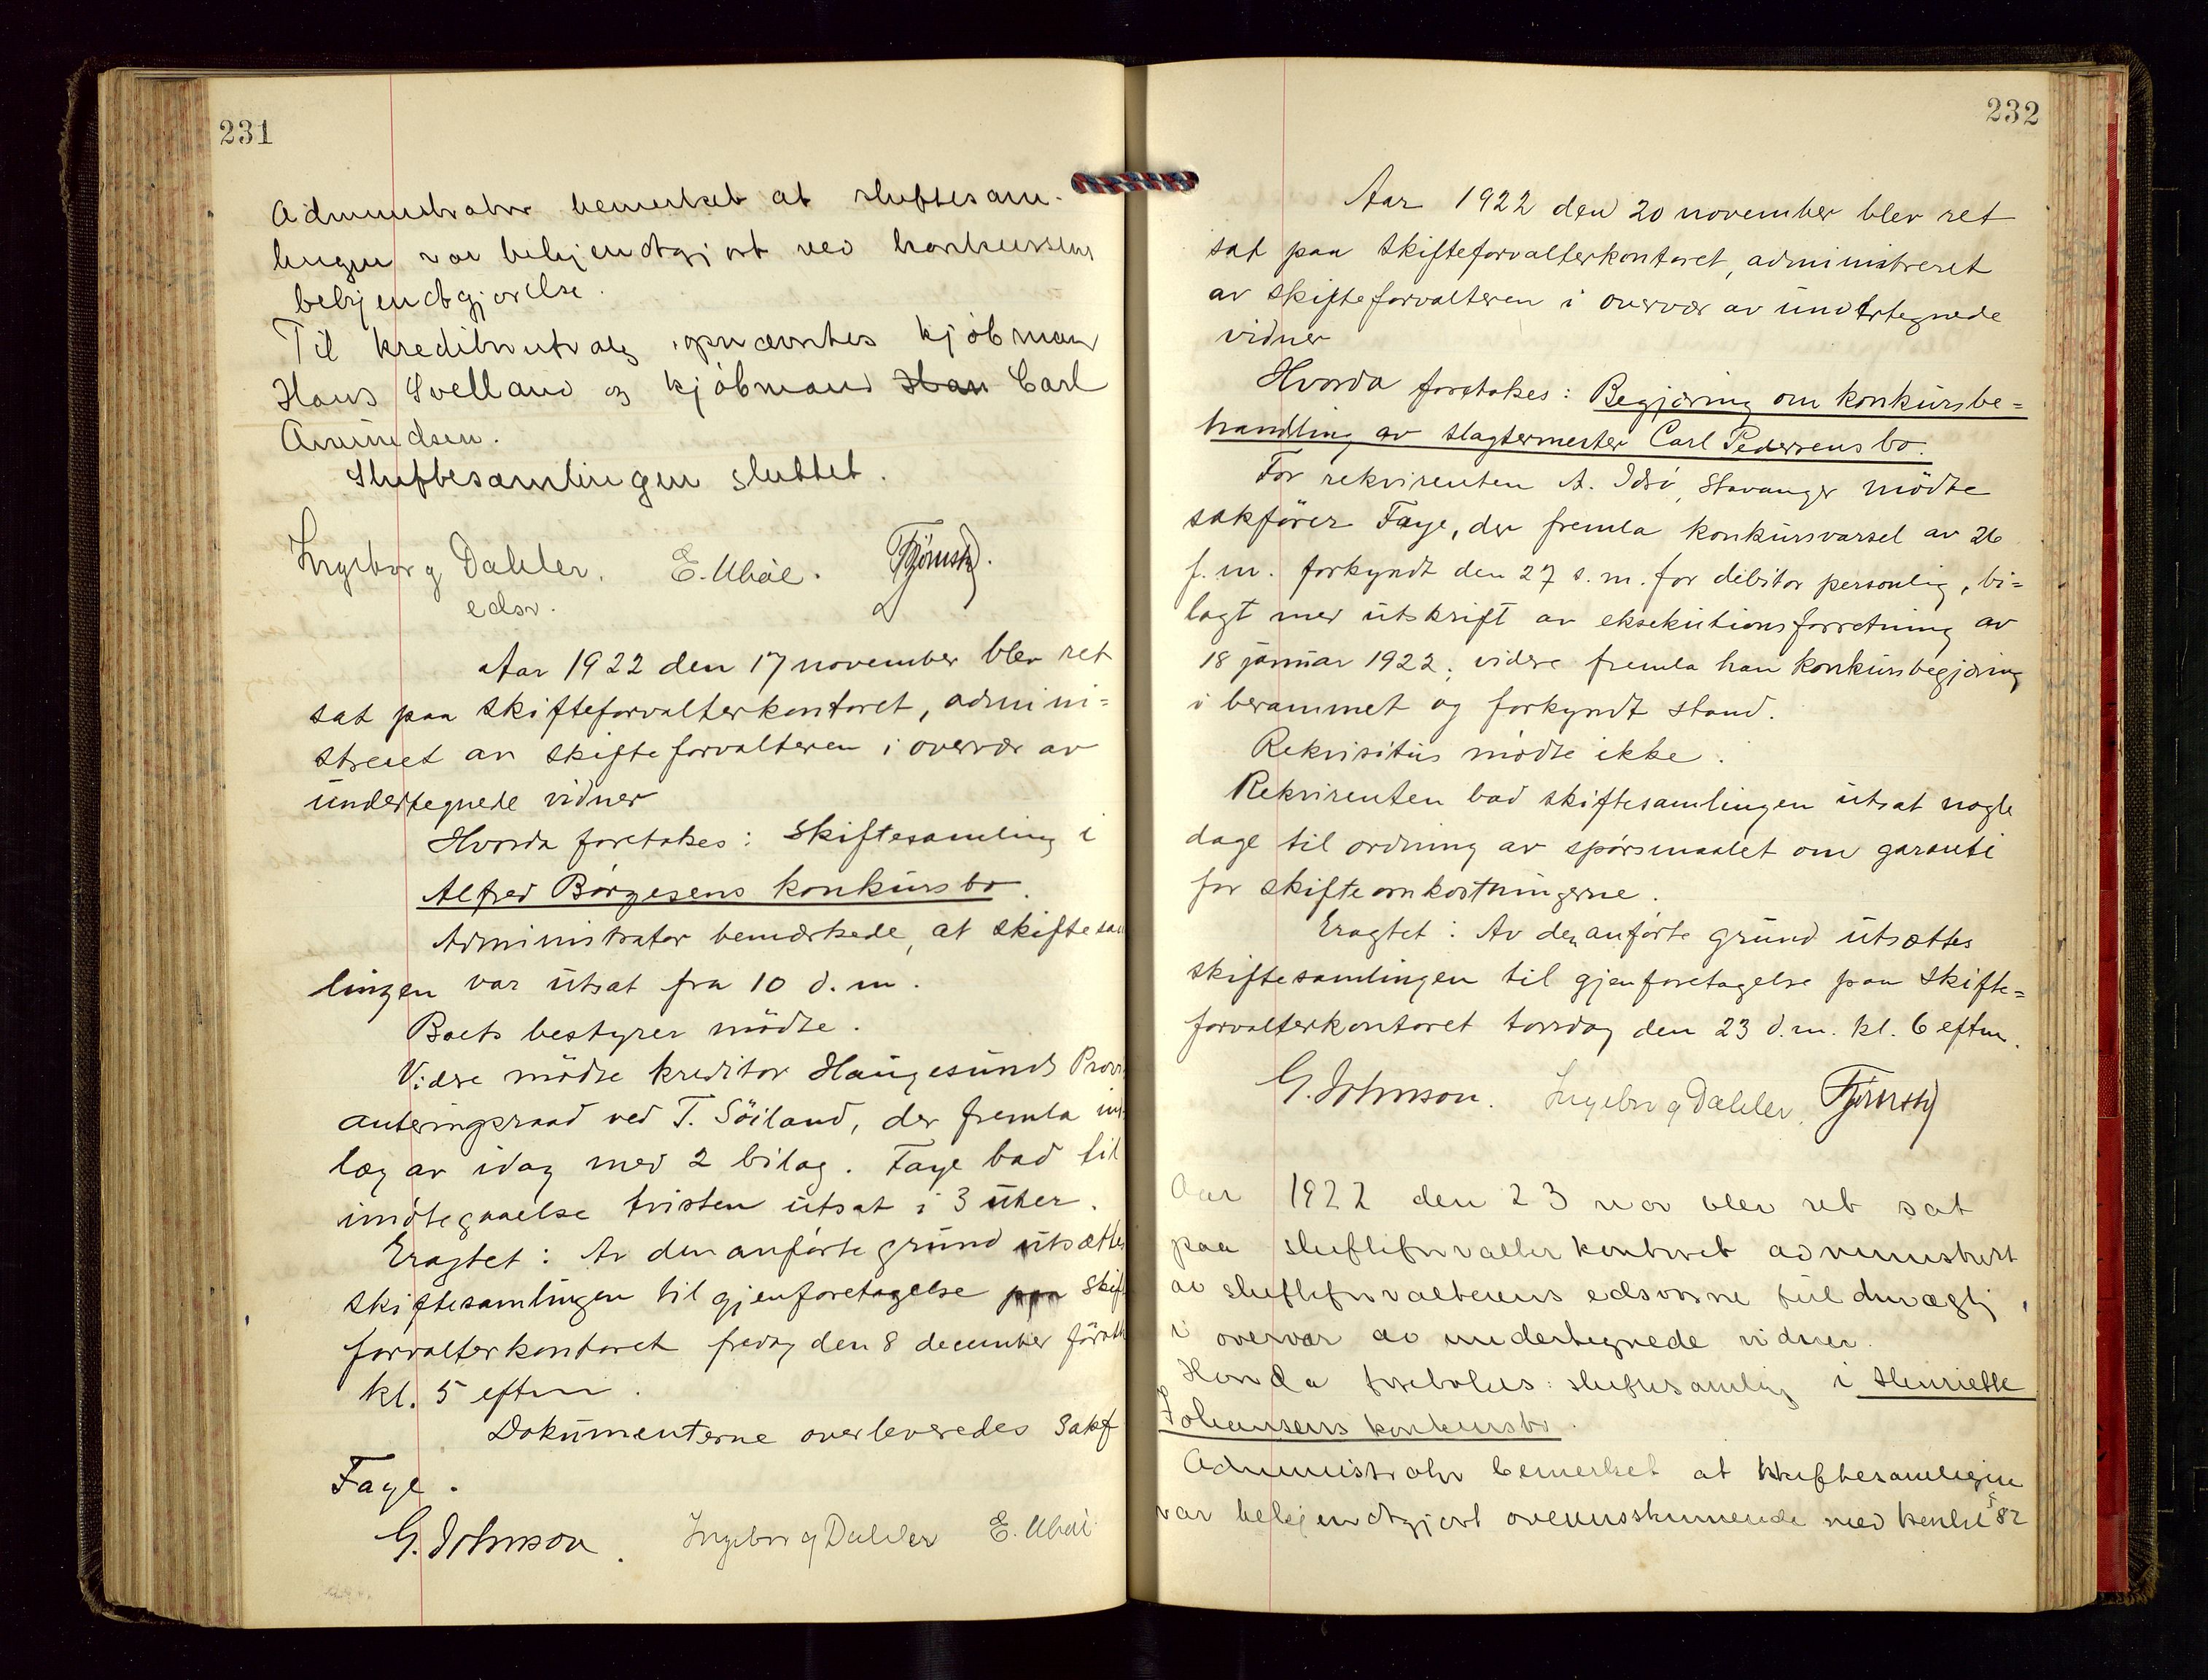 231
Administrator bemerket at skiftesam-
lingen var bekjendtgjort ved konkursens
bekjendtgjørelse.
Til kreditorutvalg opnævntes kjøbmand
Hans Svelland og kjøbmand Han Carl
Amundsen.
Skiftesamlingen sluttet.
Ingeborg Dahler. E. Ubøe.
edsv.
Aar 1922 den 17 november blev ret
sat paa skifteforvalterkontoret, admini=
streret av skifteforvalteren i overvær av
undertegnede vidner
Hvorda foretokes: Skiftesamling i
Alfred Børgesens konkursbo.
Administrator bemærkede, at skiftesam
lingen var utsat fra 10 d.m.
Boets bestyrer mödte.
Videre mödte kreditor Haugesunds Provi
anteringsraad ved T. Söiland, der fremla ind
læg av idag med 2 bilag. Faye bad til
imötegaaelse tvisten utsat i 3 uker.
Eragtet: Av den anförte grund utsættes
skiftesamlingen til gjenforetagelse paa Skif
forvalterkontoret fredag den 8 december förstk
kl. 5 eftm.
Dokumenterne overleveredes Sakf
Faye.
G. Johnson. Ingeborg Dahler E. Ubøe
232
Aar 1922 den 20 november blev ret
sat paa Skifteforvalterkontoret, administreret
av skifteforvalteren i overvær av undertegnede
vidner
Hvorda foretokes: Begjæring om konkursbe=
handling av slagtermester Carl Pedersens bo.
For rekvirenten A. Idsö, Stavanger mödte
sakförer Faye, der fremla konkursvarsel av 26
f.m. forkyndt den 27 s.m. for debitor personlig, bi=
lagt med utskrift av eksekutionsforretning av
18 januar 1922; videre fremla han konkursbegjæring
i berammet og forkyndt stand.
Rekvisitus mödte ikke.
Rekvirenten bad skiftesamlingen utsat nogle
dage til ordning av spörsmaalet om garanti
for skifteomkostningerne.
Eragtet: Av den anförte grund utsættes
skiftesamlingen til gjenforetagelse paa Skifte=
forvalterkontoret torsdag den 23 d.m. kl. 6 eftm.
G. Johnson. Ingeborg Dahler.
Aar 1922 den 23 nov blev ret sat
paa skifteforvalterkontoret administrert
av skifteforvalterens edsvorne fuldmægtig,
i overvær av undertegnede vidner.
Hvorda foretokes: skiftesamling i Henriette
Johansens konkursbo.
Administrator bemerket at skiftesamlingen
var bekjendtgjort overensstemmende med konkl § 82